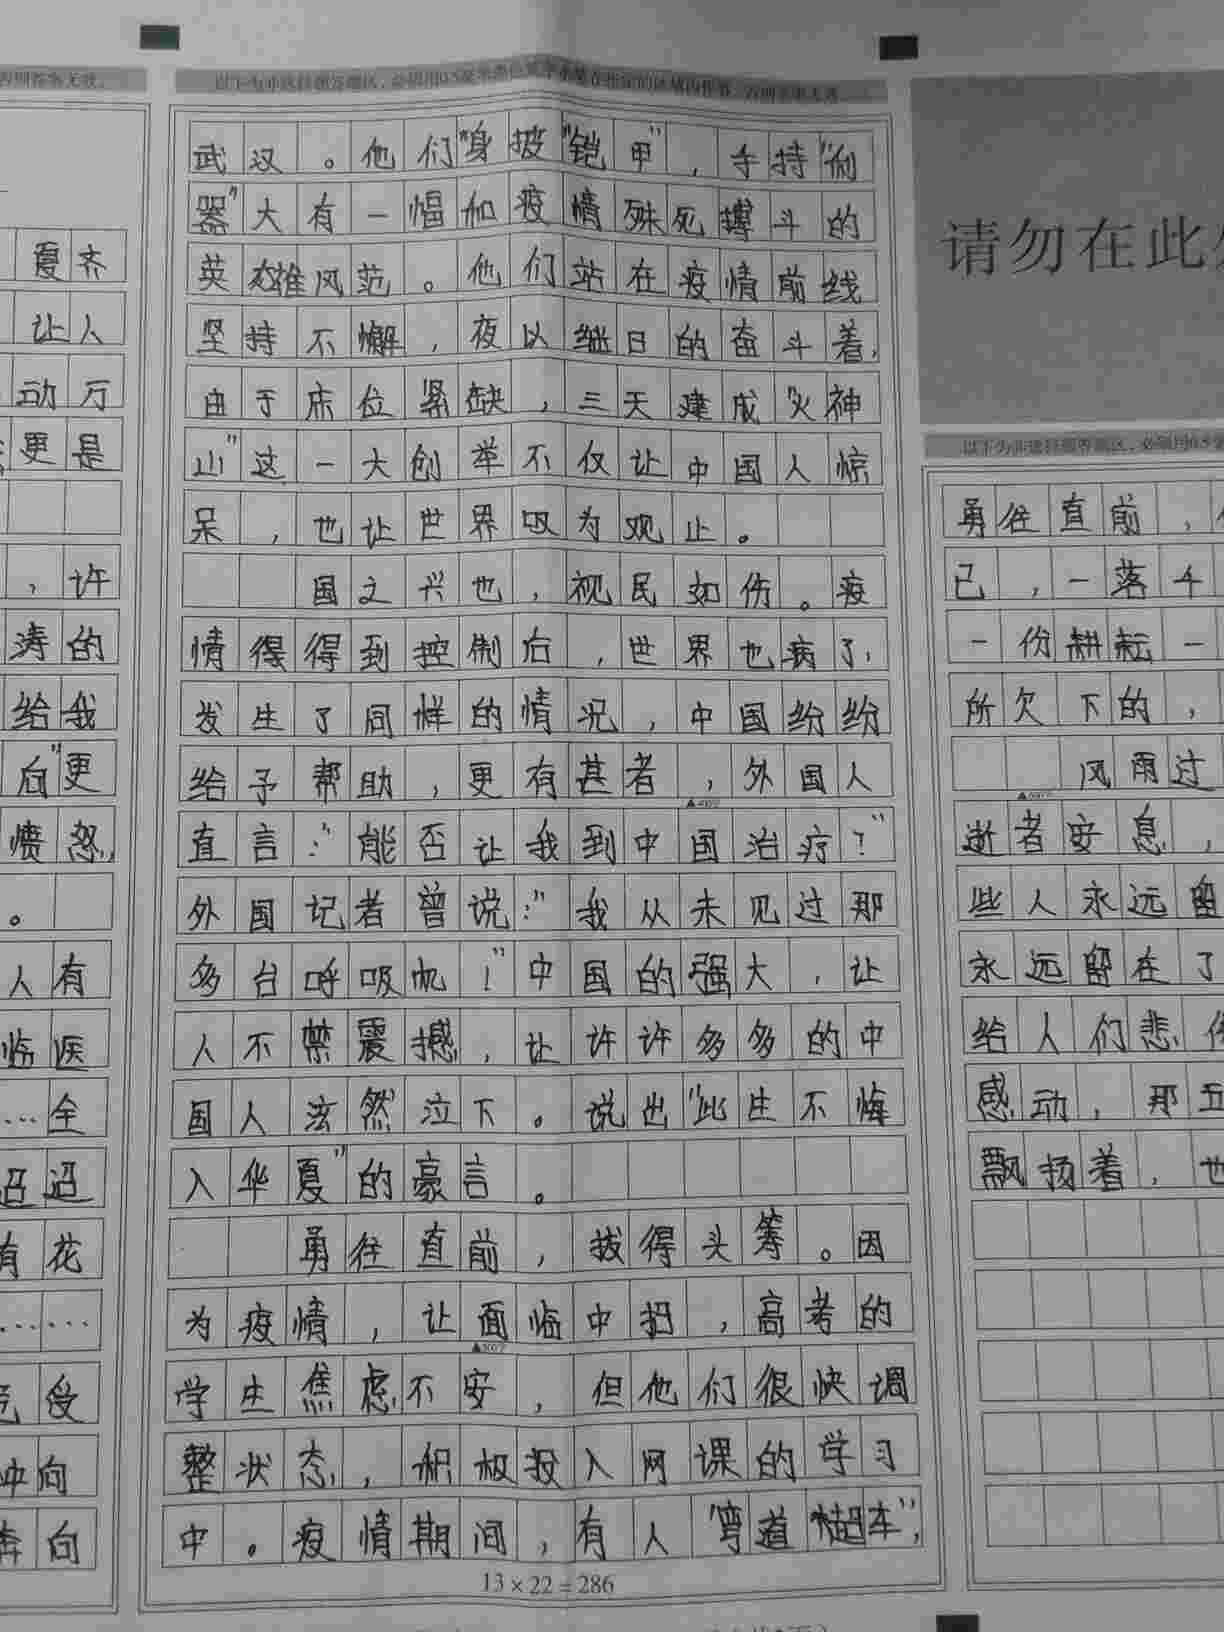 夏齐
让人
动万
更是
，许
涛的
给我
后"更
愤怒，
。
人有
临医
……全
迢迢
有花
……
受
冲向
奔向
武汉。他们"身披"铠甲"，手持"利
器"大有一幅和疫情殊死搏斗的
英雄风范。他们站在疫情前线
坚持不懈，夜以继日的奋斗着，
由于床位紧缺，三天建成"火神
山"这一大创举不仅让中国人惊
呆，也让世界叹为观止。
国之兴也，视民如伤。疫
情得得到控制后，世界也病了，
发生了同样的情况，中国纷纷
给予帮助，更有甚者，外国人
直言："能否让我到中国治疗？"
外国记者曾说："我从未见过那
多台呼吸机！"中国的强大，让
人不禁震撼，让许许多多的中
国人泫然泣下。说出"此生不悔
入华夏"的豪言。
勇往直前，拔得头筹。因
为疫情，让面临中招，高考的
学生焦虑不安，但他们很快调
整状态，积极投入网课的学习
中。疫情期间，有人"弯道超车"，
13×22=286
请勿在此
勇往直前，
已，一落千
一份耕耘一
所欠下的，
风雨过
逝者安息，
些人永远留
永远留在了
给人们悲伤
感动，那五
飘扬着，也